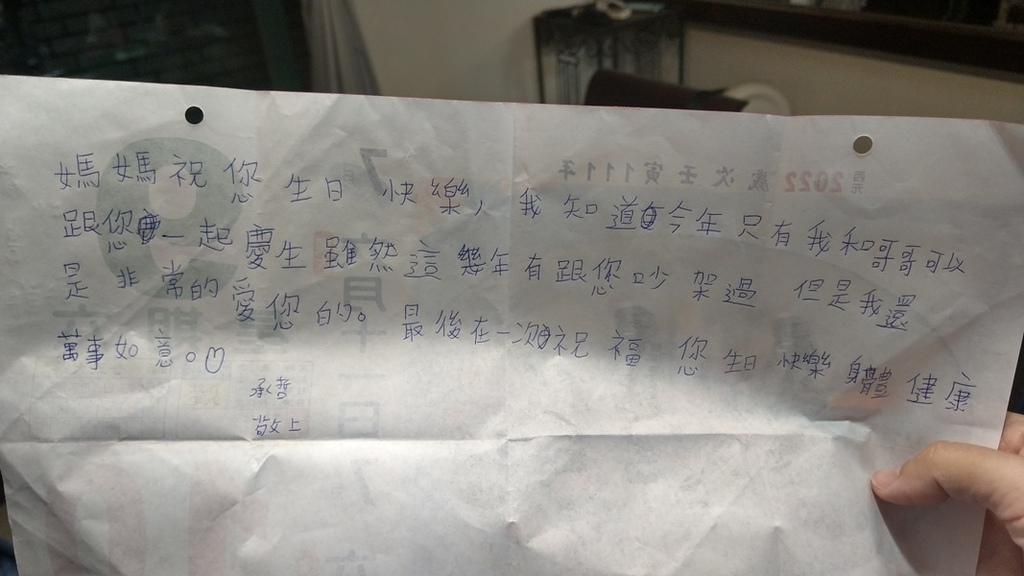 媽媽祝您生日快樂，我知道今年只有我和哥哥可以
跟您一起慶生雖然這幾年有跟您吵架過 但是我還
是非常的愛您的。最後在一次祝福您生日快樂身體健康
萬事如意。♡
承哲
敬上
西元2022歲次壬寅111年
7